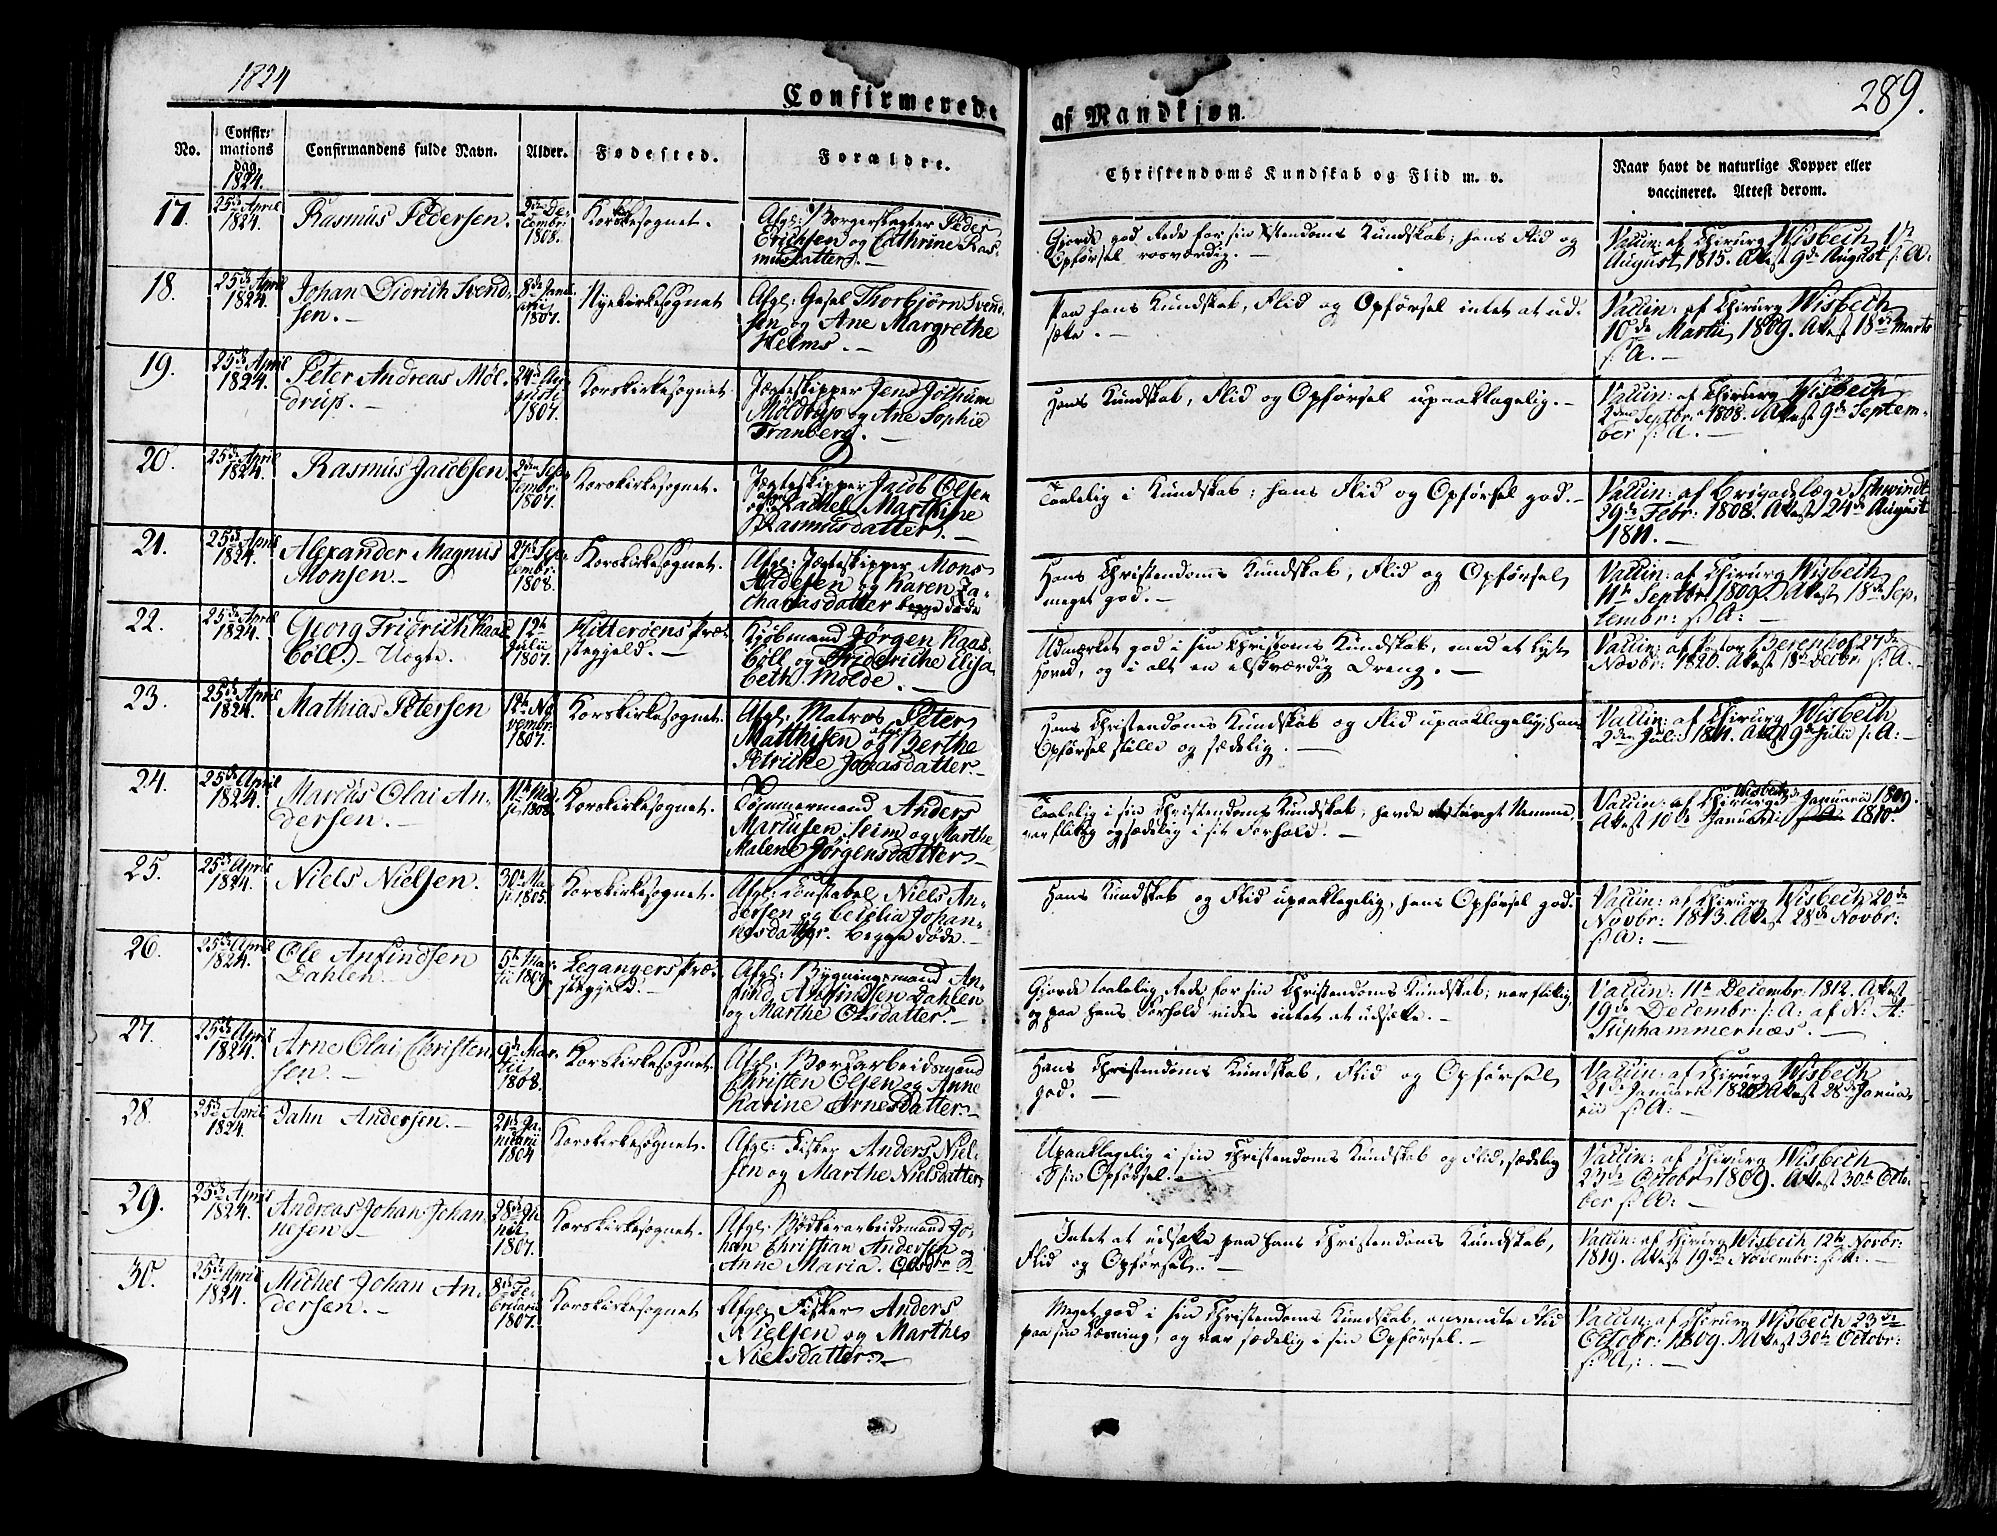 1824
289.
Confirmerede
af Mandkjøn.
No.
Confir-
mations
dag
1824.
Confirmandens fulde Navn.
Alder.
Fødested.
Forældre.
Christendoms Kundskab og Flid m. v.
Naar havt de naturlige Kopper eller
vaccineret. Attest derom.
17.
25de April
1824.
Rasmus Pedersen.
De-
cembr:
1808.
Korskirkesognet.
Afgl: Borger Peder
Erichsen og Cathrine Ras-
musdatter. —
Gjorde god Rede for sin Xstendoms Kundskab; hans Flid og
Opførsel rosværdig. —
Vaccin: af Chirurg Wisbech 1te
August 1815. Attest 9de August s: A:
18.
25de April
1824.
Johan Didrich Svend-
sen. —
8de Janu-
arii
1807.
Nyekirkesognet
Afgl: Gesel Thorbjørn Svend-
sen og Ane Margrethe
Helms. —
Paa hans Kundskab, Flid og Opførsel intet at ud-
sætte. —
Vaccin: af Chirurg Wisbech
10de Martii 1809. Attest 18de Marts
s: A. —
19.
25de April
1824.
Peter Andreas Møl-
drup. —
24de Au-
gusti
1807.
Korskirkesognet.
Jægteskipper Jens Jochum
Møldrup og Ane Sophie
Tranberg. —
Hans Kundskab, Flid og Opførsel upaaklagelig. —
Vaccin: af Chirurg Wisbech
2den Septbr: 1808. Attest 9de Septem-
ber s: A. —
20.
25de April
1824.
Rasmus Jacobsen.
2den Sep-
tembr:
1807.
Korskirkesognet.
Jægteskipper Jacob Olsen
og Rachel Marthine
Rasmusdatter. —
Taalelig i Kundskab; hans Flid og Opførsel god. —
Vaccin: af Brigadlæge Schwindt
29de Febr: 1808. Attest 24de August
1811.
21.
25de April
1824.
Alexander Magnus
Monsen. —
27de Sep-
tembr:
1808.
Korskirkesognet.
Afgl: Jægteskipper Mons
Andersen og Karen Za-
chariasdatter begge døde
Hans Christendoms Kundskab, Flid og Opførsel
meget god. —
Vaccin: af Chirurg Wisbech
11te Septbr 1809. Attest 18de Sep-
tembr: s: A: —
22.
25de April
1824.
Georg Fridrich Kaas-
böll. — Uægte.
12te
Julii
1807.
Hitterøens Præ-
stegjeld. —
Kjöbmand Jørgen Kaas-
böll og Friderike Elisa-
beth Molde. —
Udmærket god i sin Christdoms Kundskab, med et lyst
Hoved, og i alt en elskværdig Dreng. —
Vaccin: af Pastor Berenhof 27de
Novbr: 1820. Attest 18de Decbr: s: A. —
23.
25de April
1824.
Mathias Petersen
12te No-
vembr:
1807.
Korskirkesognet.
Afgl: Matros Peter
Matthisen og Berthe
Petricke Jonasdatter. —
Hans Christendoms Kundskab og Flid upaaklagelig; hans
Opførsel stille og sædelig. —
Vaccin: af Chirurg Wisbech
2den Julii 1811. Attest 9de Julii s: A: —
24.
25de April
1824.
Marcus Olai An-
dersen. —
11te Ma-
ji 1808.
Korskirkesognet.
Tømmermand Anders
Martinsen Seim og Marthe
Malene Jørgensdatter. —
Taalelig i sin Christendoms Kundskab, havde et tungt Nemme,
var flittig og sædelig i sit Forhold. —
Vaccin: af Chirurg Wisbech Januarii 1809.
Attest 10de Januarii 1810.
25.
25de April
1824.
Niels Nielsen.
30te Ma-
ji 1805.
Korskirkesognet.
Afgl: Konstabel Niels An-
dersen og Cecilia Johan-
nesdatter. begge døde. —
Hans Kundskab og Flid upaaklagelig, hans Opførsel god.
Vaccin: af Chirurg Wisbech 20de
Novbr: 1813. Attest 28de Novbr:
s: A: —
26.
25de April
1824.
Ole Anfindsen
Dahlen. —
5te Mar-
tii 1809.
Legangers Præ-
stegjeld. —
Afgl: Bygningsmand An-
find Anfindsen Dahlen
og Marthe Olsdatter. —
Gjorde taalelig Rede for sin Christendoms Kundskab; var flittig,
og paa hans Forhold vides intet at udsætte. —
Vaccin: 11te Decembr: 1812. Attest
19de Decembr: s: A: af N: A:
Stiphammernæs. —
27.
25de April
1824.
Arne Olai Christen-
sen. —
9de Mar-
tii
1808.
Korskirkesognet.
Afgl: Bordarbeidsmand
Christen Olsen og Anne
Karine Arnesdatter. —
Hans Christendoms Kundskab, Flid og Opførsel
god. —
Vaccin: af Chirurg Wisbech
21de Januarii 1820. Attest 28de Janua-
rii s: A: —
28.
25de April
1824.
Jahn Andersen. —
21de Ja-
nuarii
1804
Korskirkesognet.
Afgl: Fisker Anders Niel-
sen og Marthe Nielsdatter.
Upaaklagelig i sin Christendoms Kundskab og Flid, sædelig
i sin Opførsel. —
Vaccin: af Chirurg Wisbech
23de Octobr 1809. Attest 30te Octo-
ber s: A: —
29.
25de April
1824.
Andreas Johan Johan-
nesen. —
28de Ju-
nii
1807.
Korskirkesognet.
Afgl: Bødkerarbeidsmand Jo-
han Christian Andersen og
Anne Maria
Intet at udsætte paa hans Christendoms Kundskab,
Flid og Opførsel. —
Vaccin: af Chirurg Wisbech 12te Novbr:
1819. Attest 19de Novembr: s: A: —
30.
25de April
1824.
Michel Johan An-
dersen. —
8de Fe-
bruarii
1807.
Korskirkesognet
Afgl: Fisker Anders
Nielsen og Marthe
Nielsdatter. —
Meget god i sin Christendoms Kundskab, anvendte Flid
paa sin Læsning, og var sædelig i sin Opførsel. —
Vaccin: af Chirurg Wisbech 23de
Octobr: 1809. Attest 30te Octobr:
s: A: —